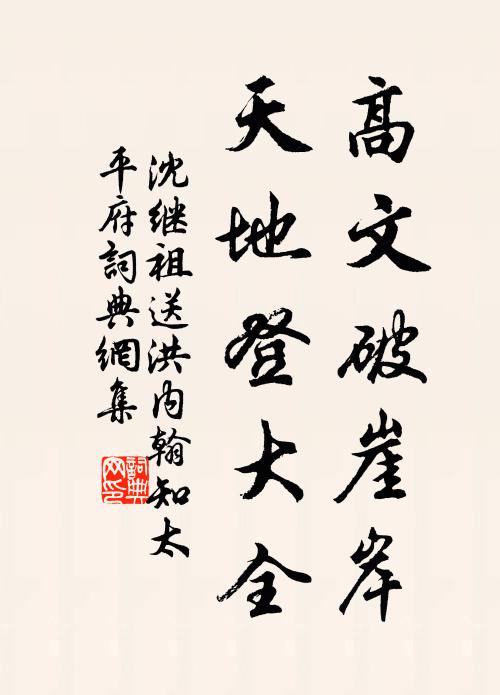 高文破崖岸
天地登大全
沈继祖送洪内翰知太
平府詞典網集
詞典
网印